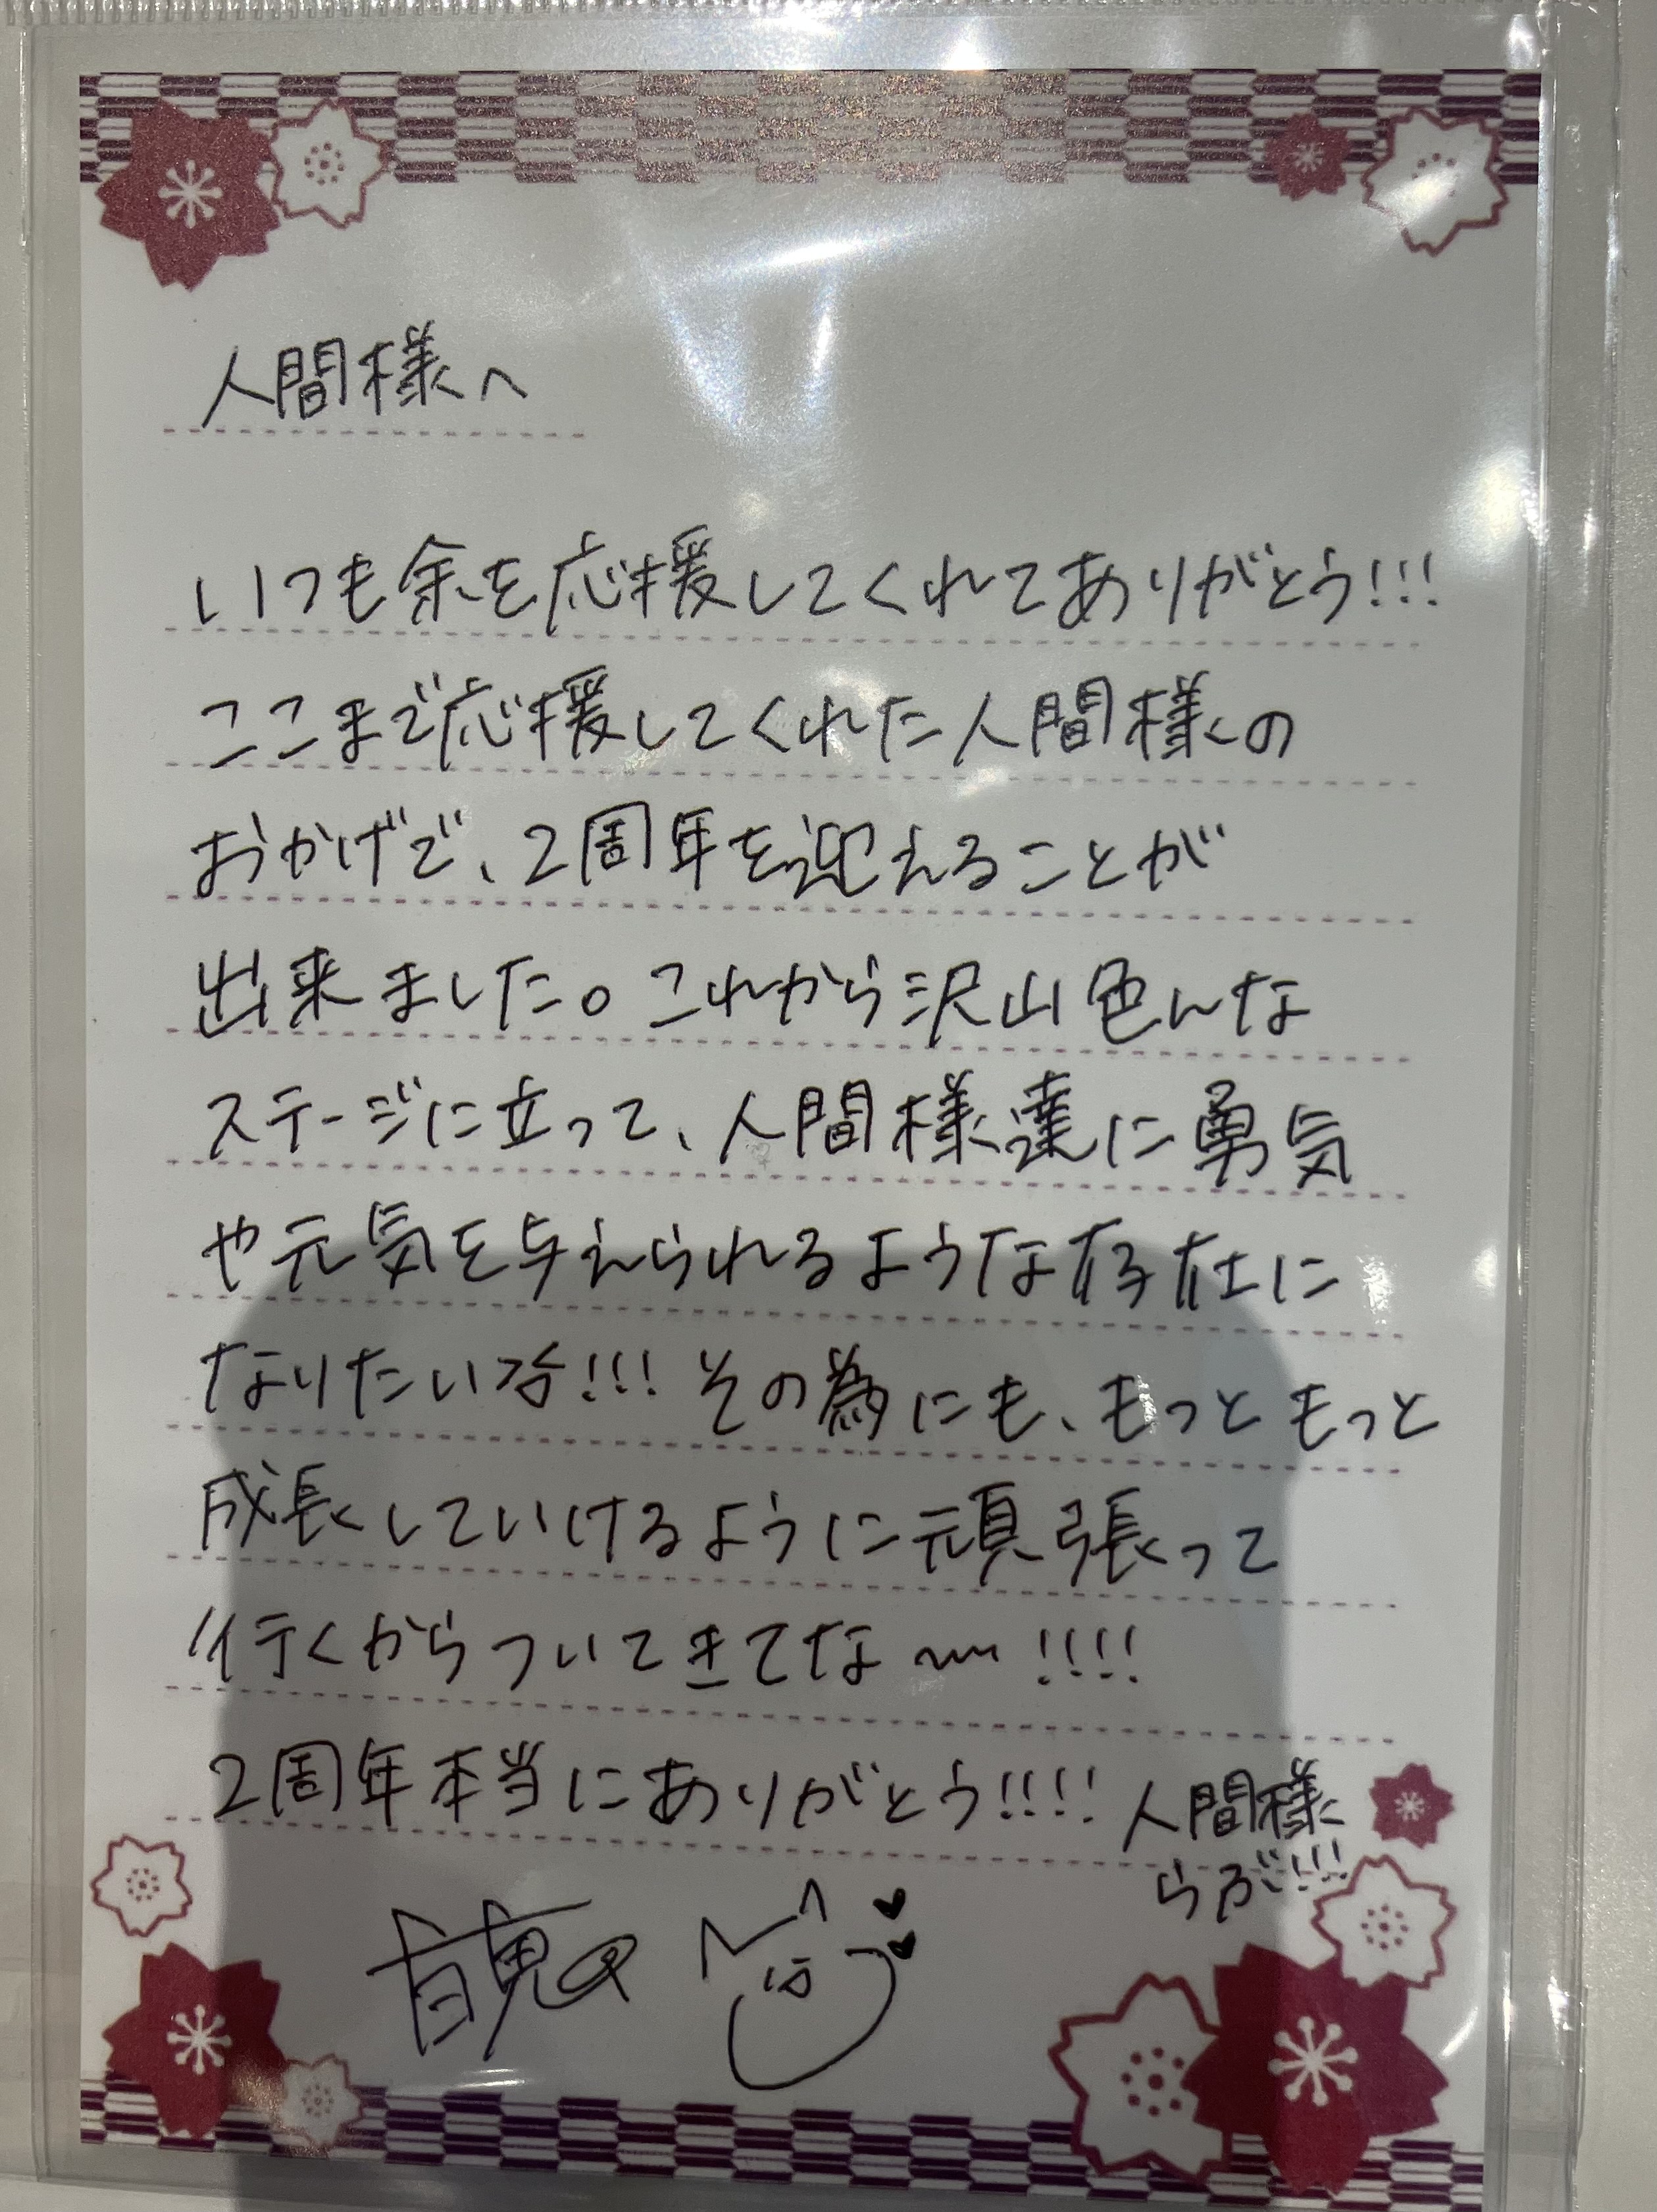 人間様へ
いつも余を応援してくれてありがとう!!!
ここまで応援してくれた人間様の
おかげで、2周年を迎えることが
出来ました。これから沢山色んな
ステージに立って、人間様達に勇気
や元気を与えられるような存在に
なりたい余!!! その為にも、もっともっと
成長していけるように頑張って
行くからついてきてな〜!!!!
2周年本当にありがとう!!!! 人間様
らぶ!!!
百鬼